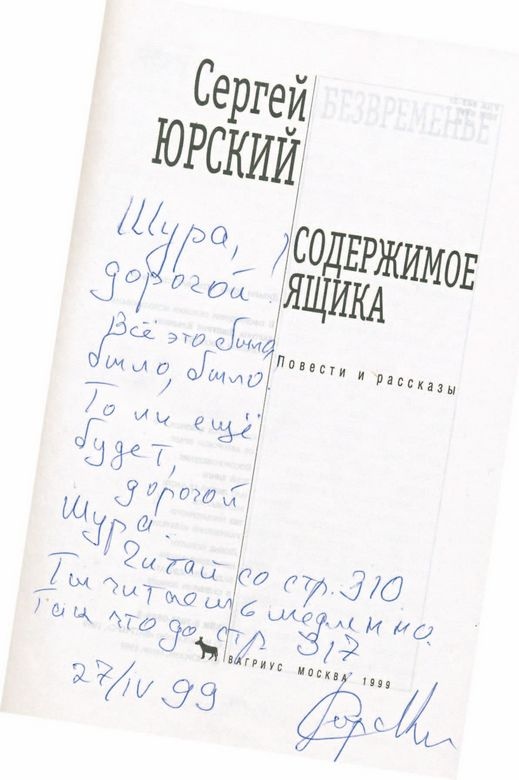 Сергей
ЮРСКИЙ
БЕЗВРЕМЕНЬЕ
СОДЕРЖИМОЕ
ЯЩИКА
Повести и рассказы
Шура,
дорогой.
Всё это было,
было, было.
То ли ещё
будет,
дорогой
Шура.
Читай со стр. 310
Ты читаешь медленно.
Так что до стр 317
ВАГРИУС МОСКВА 1999
27/IV 99